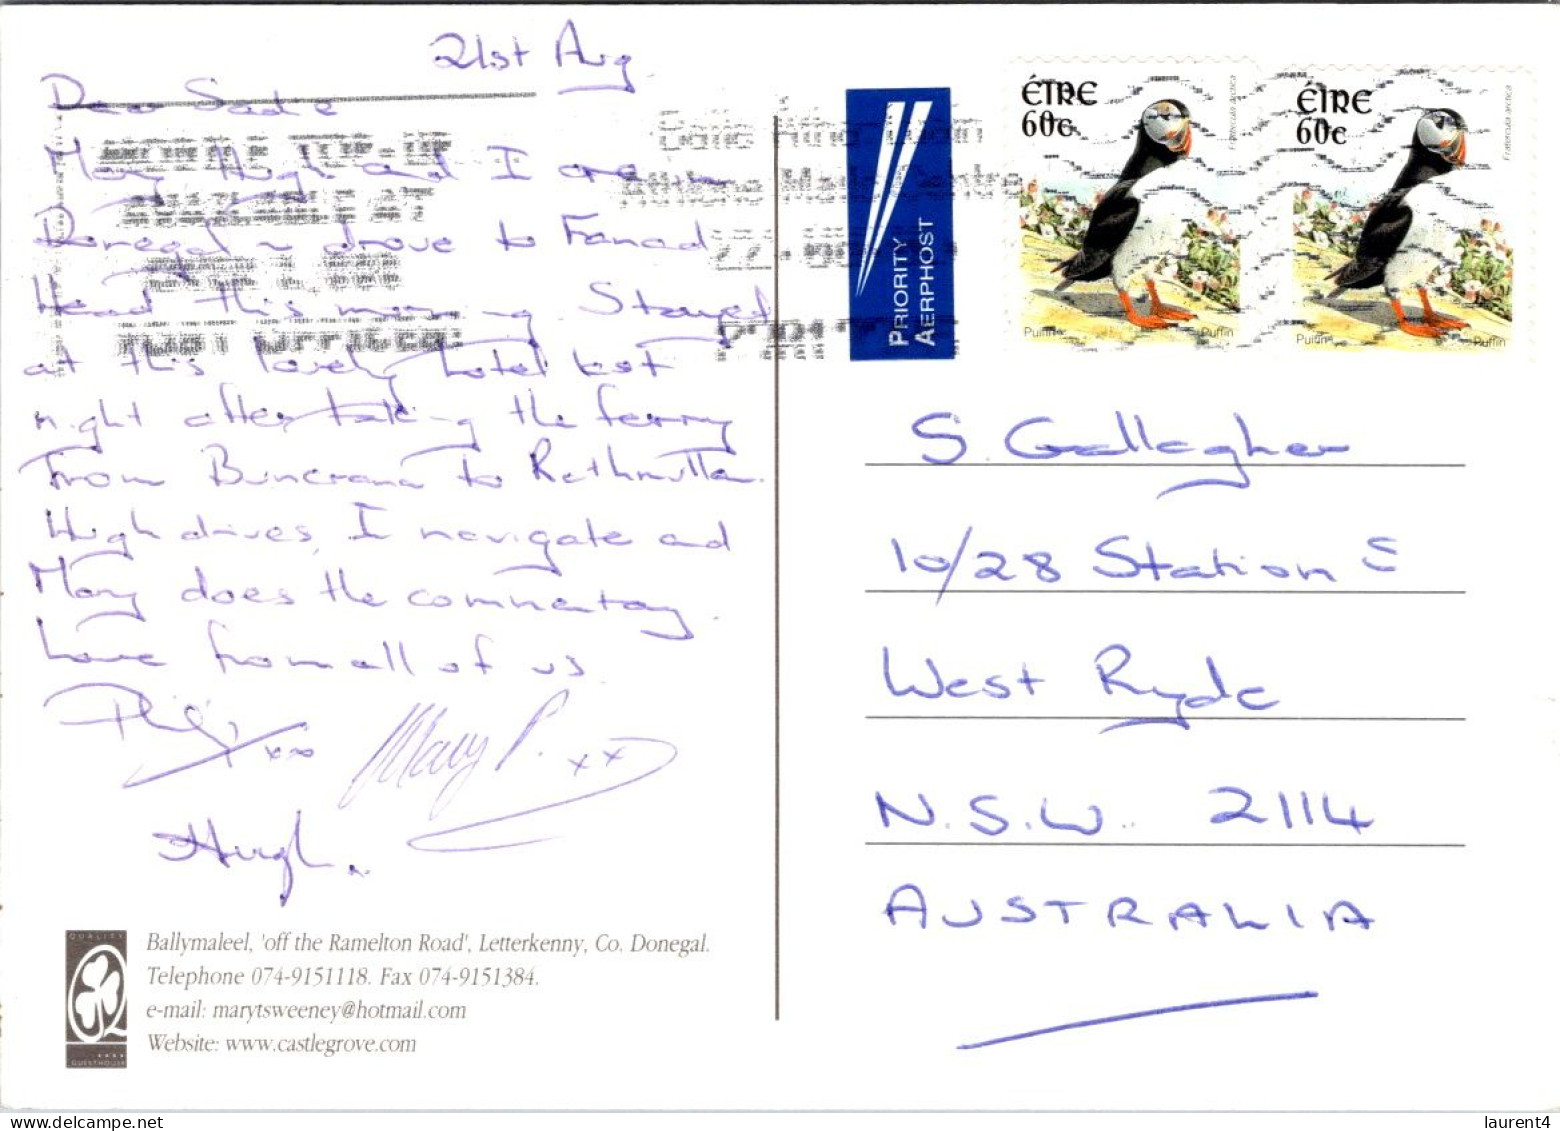 21st Aug.
Dear Sadie
Mary, Hugh and I are in
Donegal ~ drove to Fanad
Head this morning. Stayed
at this lovely hotel last
night after taking the ferry
from Buncrana to Rathmullan.
Hugh drives, I navigate and
Mary does the commentary.
Love from all of us.
Philip xxx Mary P. xx
Hugh.
QUALITY
GUESTHOUSE
Ballymaleel, 'off the Ramelton Road', Letterkenny, Co. Donegal.
Telephone 074-9151118. Fax 074-9151384.
e-mail: marytsweeney@hotmail.com
Website: www.castlegrove.com
MOBILE TOP-UP
AVAILABLE AT
POST OFFICES!
Baile Átha Cliath
Athlone Mails Centre
PRIORITY
AERPHOST
ÉIRE
60c
Fratercula arctica
Puifín Puffin
ÉIRE
60c
Fratercula arctica
Puifín Puffin
S. Gallagher
10/28 Station S
West Ryde
N.S.W. 2114
AUSTRALIA
laurent4